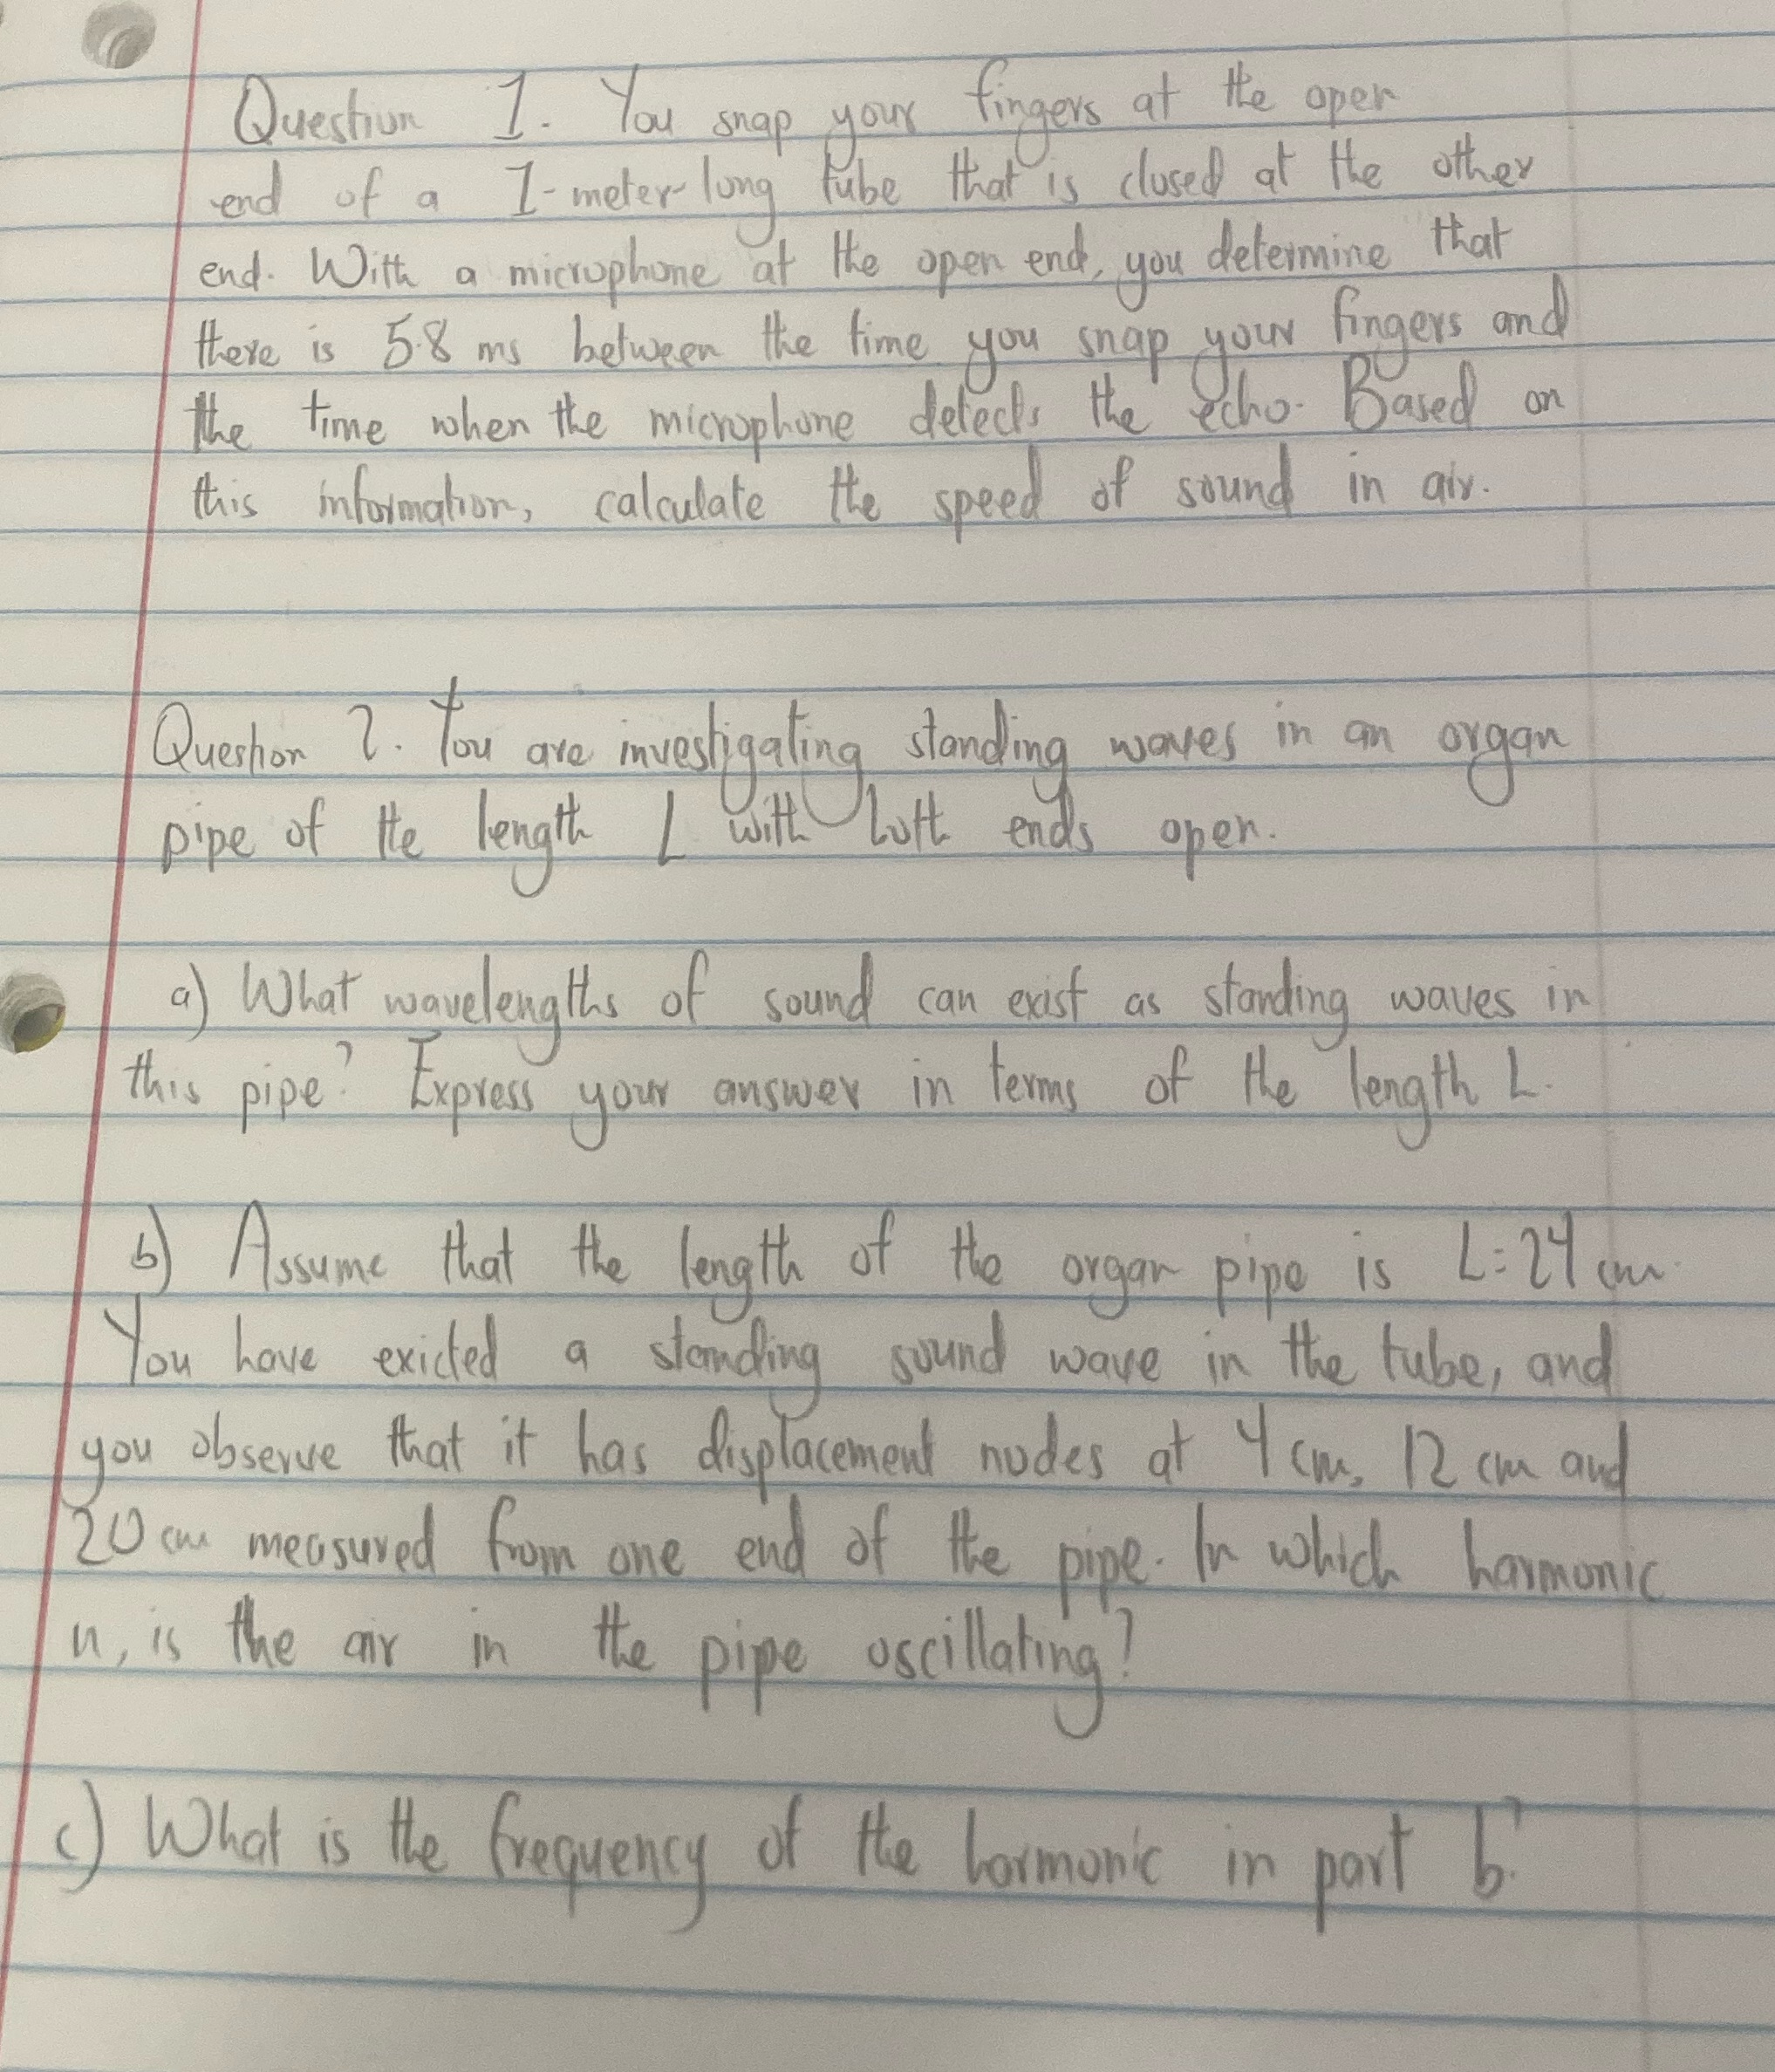 Question 1. You snap your fingers at the open
end of a 1-meter-long tube that is closed at the other
end. With a microphone at the open end, you determine that
there is 5.8 ms between the time you snap your fingers and
the time when the microphone detects the echo. Based on
this information, calculate the speed of sound in air.
Question 2. You are investigating standing waves in an organ
pipe of the length L with both ends open.
a) What wavelengths of sound can exist as standing waves in
this pipe? Express your answer in terms of the length L.
b) Assume that the length of the organ pipe is L=24 cm.
You have exicted a standing sound wave in the tube, and
you observe that it has displacement nodes at 4 cm, 12 cm and
20 cm measured from one end of the pipe. In which harmonic
n, is the air in the pipe oscillating?
c) What is the frequency of the harmonic in part b?